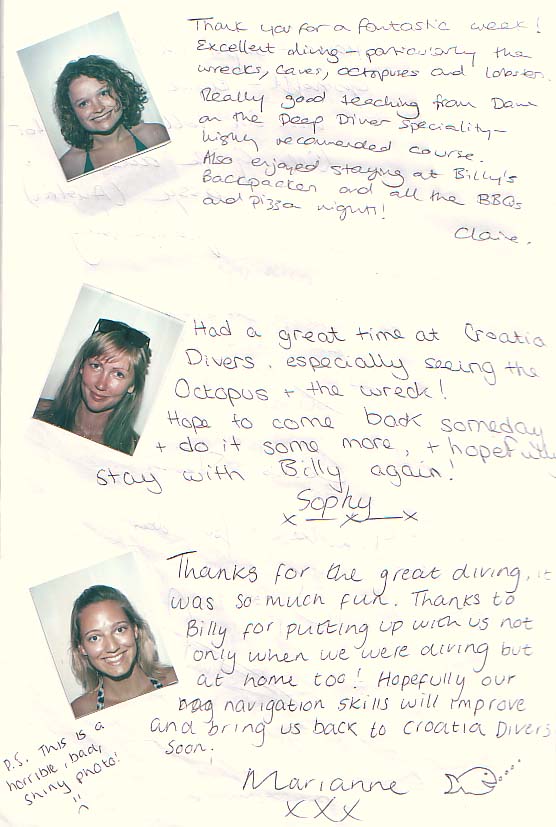 Thank you for a fantastic week!
Excellent diving - particularly the
wrecks, caves, octopuses and lobster.
Really good teaching from Dan
on the Deep Diver Speciality -
highly recomended course.
Also enjoyed staying at Billy's
Backpacker and all the BBQs
and pizza nights!
Claire.
Had a great time at Croatia
Divers, especially seeing the
Octopus + the wreck!
Hope to come back someday
+ do it some more, + hopefully
stay with Billy again!
Sophy
x x x
Thanks for the great diving, it
was so much fun. Thanks to
Billy for putting up with us not
only when we were diving but
at home too! Hopefully our
navigation skills will improve
and bring us back to Croatia Divers
soon.
Marianne
XXX
P.S. This is a
horrible, bad,
shiny photo!